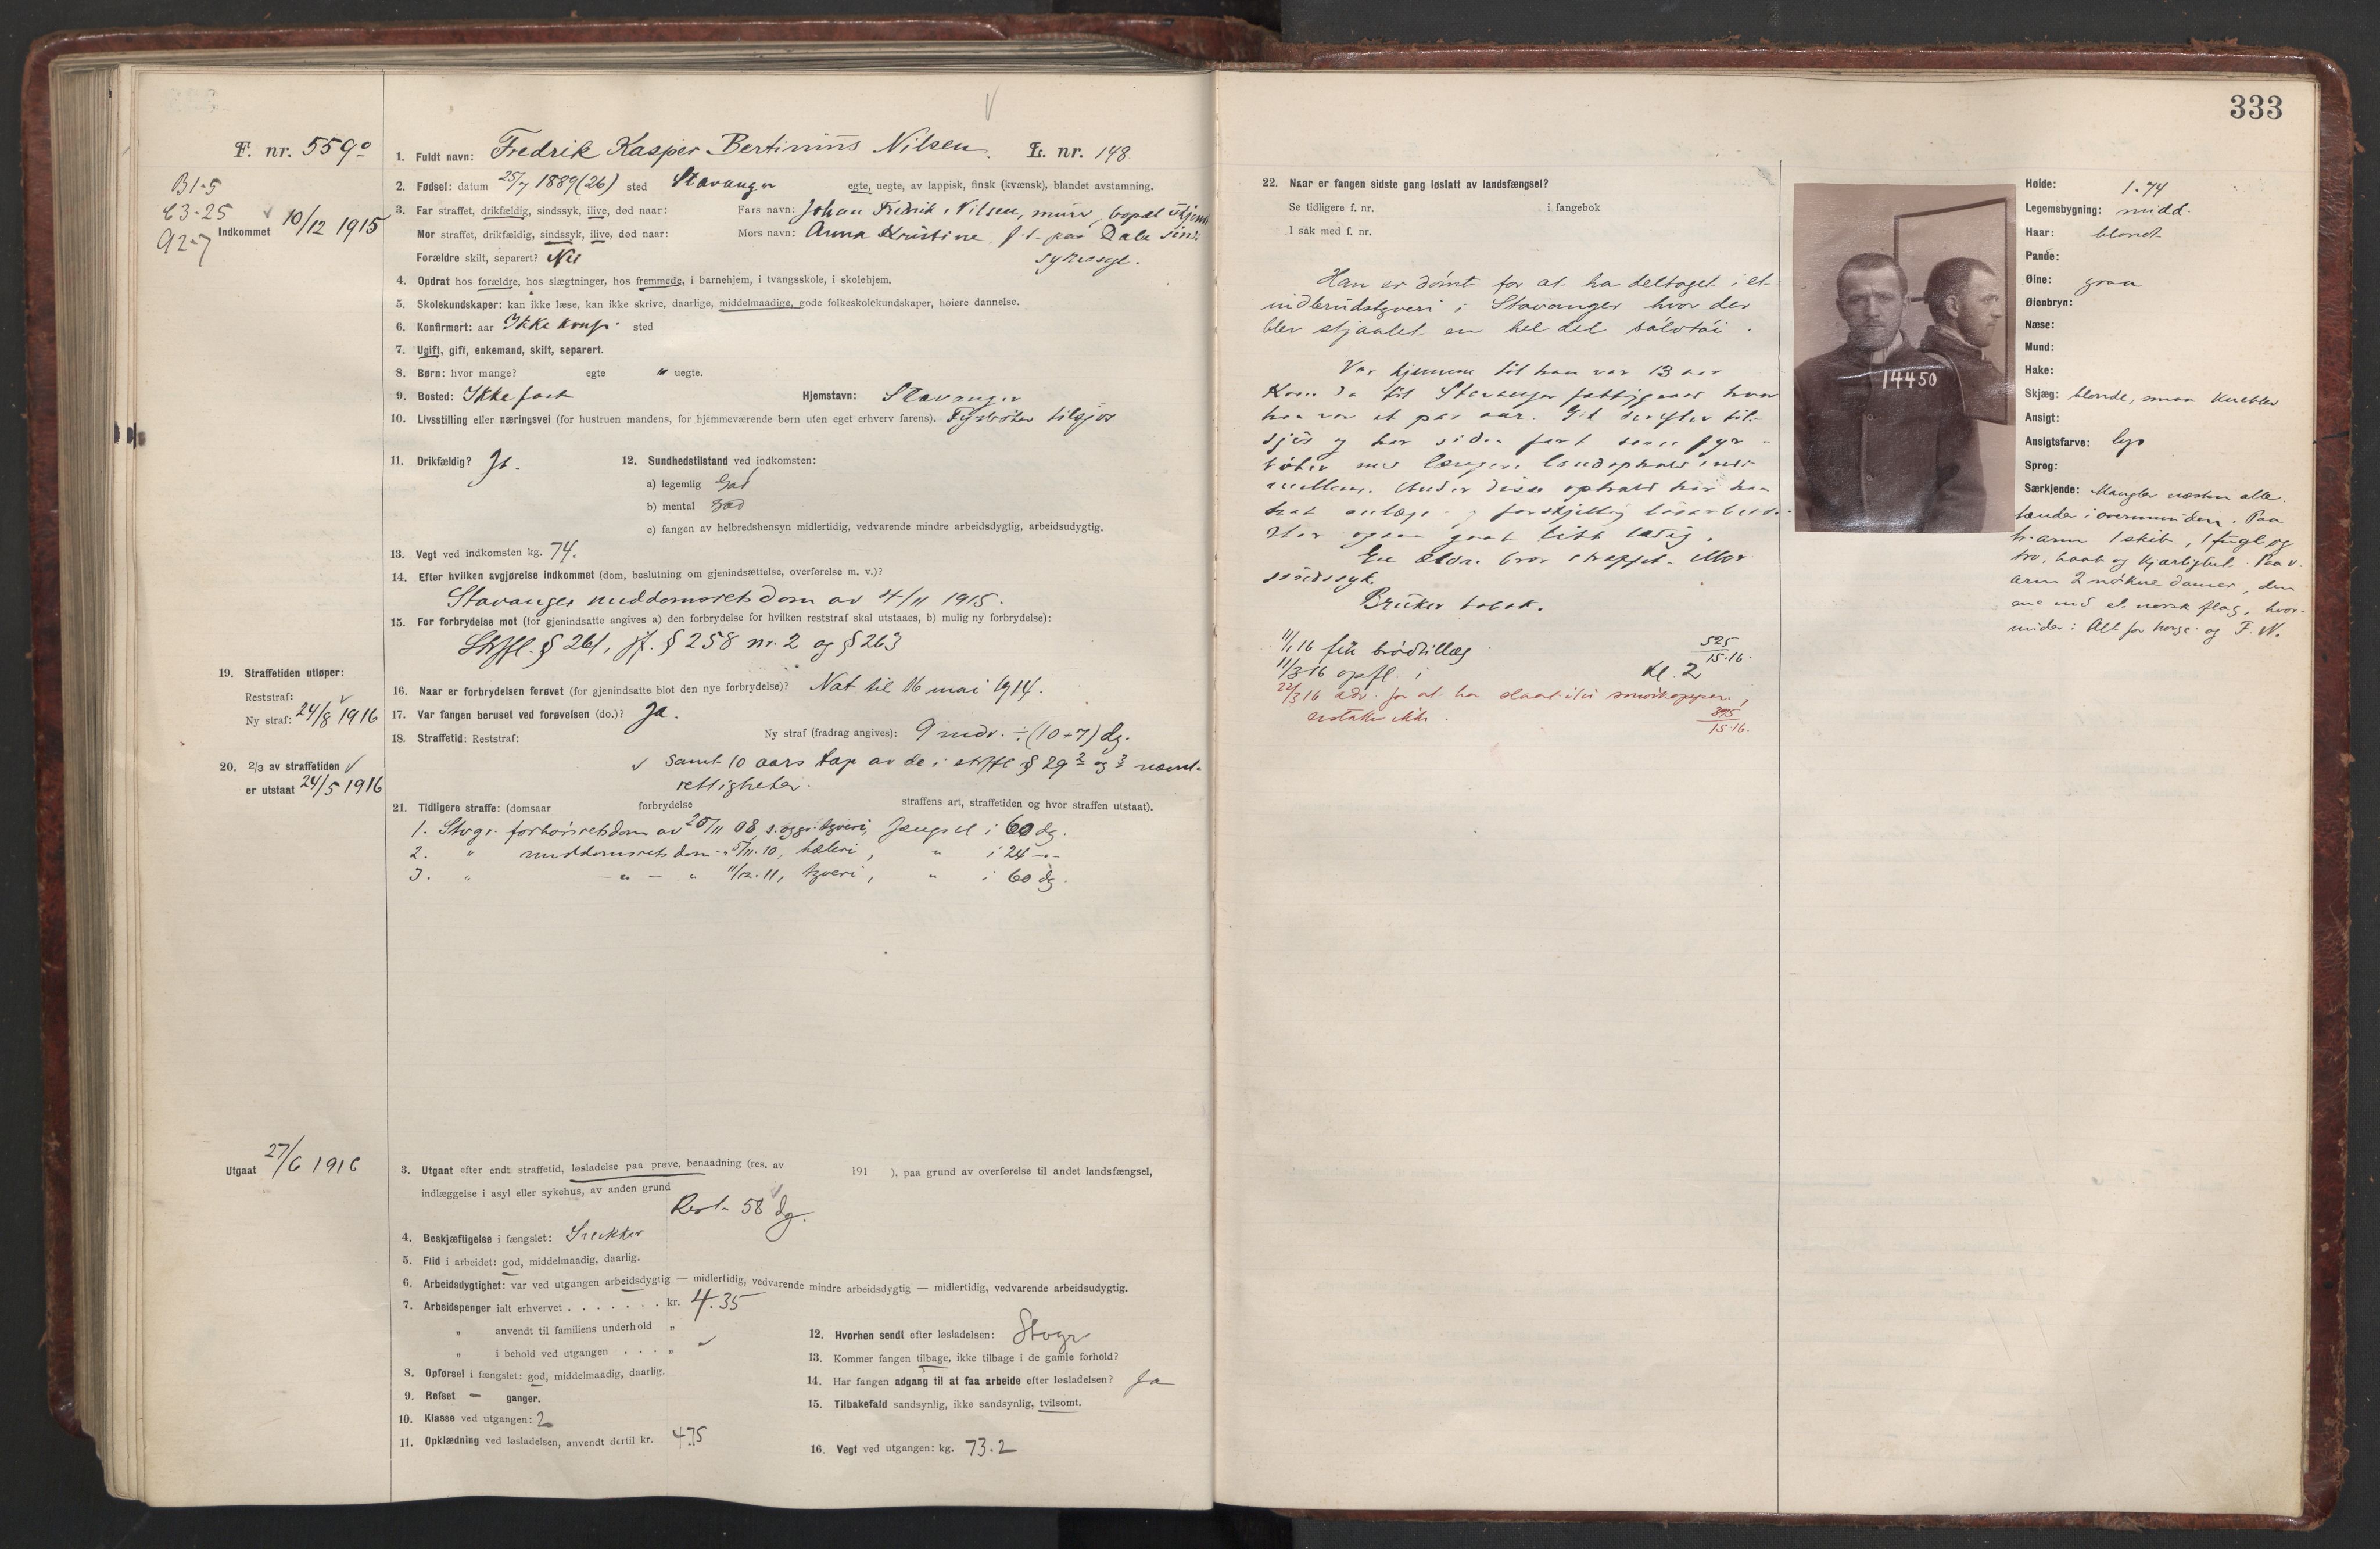 333
F. nr. 559º
1. Fuldt navn: Fredrik Kasper Bertinius Nilsen. L. nr. 148
B1-5
C3-25
92-7
Indkommet 10/12 1915
2. Fødsel: datum 25/7 1889 (26) sted Stavanger egte, uegte, av lappisk, finsk (kvænsk), blandet avstamning.
3. Far straffet, drikfældig, sindssyk, ilive, død naar: Fars navn: Johan Fredrik Nilsen, murer, bopæl
Mor straffet, drikfældig, sindssyk, ilive, død naar: Mors navn: Anna Kristine, f. t. paa Dale sinds
sykeasyl.
Forældre skilt, separert? Nei
4. Opdrat hos forældre, hos slægtninger, hos fremmede, i barnehjem, i tvangsskole, i skolehjem.
5. Skolekundskaper: kan ikke læse, kan ikke skrive, daarlige, middelmaadige, gode folkeskolekundskaper, høiere dannelse.
6. Konfirmert: aar Ikke konf. sted
7. Ugift, gift, enkemand, skilt, separert.
8. Børn: hvor mange? egte " uegte.
9. Bosted: Ikke fast Hjemstavn: Stavanger
10. Livsstilling eller næringsvei (for hustruen mandens, for hjemmeværende børn uten eget erhverv farens). Fyrbøter tilsjøs
11. Drikfældig? Ja.
12. Sundhedstilstand ved indkomsten:
a) legemlig God
b) mental god
c) fangen av helbredshensyn midlertidig, vedvarende mindre arbeidsdygtig, arbeidsudygtig.
13. Vegt ved indkomsten kg. 74.
14. Efter hvilken avgjørelse indkommet (dom, beslutning om gjenindsættelse, overførelse m. v.)?
Stavanger meddomsrets dom av 4/11 1915.
15. For forbrydelse mot (for gjenindsatte angives a) den forbrydelse for hvilken reststraf skal utstaaes, b) mulig ny forbrydelse):
Strfl. § 261, jf. § 258 nr. 2 og § 263
16. Naar er forbrydelsen forøvet (for gjenindsatte blot den nye forbrydelse)? Nat til 16 mai 1914.
17. Var fangen beruset ved forøvelsen (do.)? Ja.
18. Straffetid: Reststraf: Ny straf (fradrag angives): 9 mdr. ÷ (10+7) dg.
samt 10 aars tap av de i strfl § 29 2 og 3 nævnte
rettigheter.
19. Straffetiden utløper:
Reststraf:
Ny straf: 24/8 1916
20. 2/3 av straffetiden
er utstaat 24/5 1916
21. Tidligere straffe: (domsaar forbrydelse straffens art, straffetiden og hvor straffen utstaat).
1. Stvgr. forhørsrets dom av 20/11 08, tyveri, fængsel i 60 dg.
2. " meddomsrets dom " 5/11-10, hæleri, " i 24 -"-
3. " -"- " 11/12-11, tyveri, " i 60 dg.
Utgaat 27/6 1916
3. Utgaat efter endt straffetid, løsladelse paa prøve, benaadning (res. av 191 ), paa grund av overførelse til andet landsfængsel,
indlæggelse i asyl eller sykehus, av anden grund
Rest 58 dg.
4. Beskjæftigelse i fængslet: Snekker
5. Flid i arbeidet: god, middelmaadig, daarlig.
6. Arbeidsdygtighet: var ved utgangen arbeidsdygtig — midlertidig, vedvarende mindre arbeidsdygtig — midlertidig, vedvarende arbeidsudygtig.
7. Arbeidspenger ialt erhvervet . . . . . . . kr. 4.35
" anvendt til familiens underhold "
" i behold ved utgangen . . . "
8. Opførsel i fængslet: god, middelmaadig, daarlig.
9. Refset — ganger.
10. Klasse ved utgangen: 2
11. Opklædning ved løsladelsen, anvendt dertil kr. 4.75
12. Hvorhen sendt efter løsladelsen: Stvgr
13. Kommer fangen tilbage, ikke tilbage i de gamle forhold?
14. Har fangen adgang til at faa arbeide efter løsladelsen? Ja
15. Tilbakefald sandsynlig, ikke sandsynlig, tvilsomt.
16. Vegt ved utgangen: kg. 73.2
22. Naar er fangen sidste gang løslatt av landsfængsel?
Se tidligere f. nr. i fangebok
I sak med f. nr.
Han er dømt for at ha deltaget i et
indbrudstyveri i Stavanger hvor der
blev stjaalet en hel del sølvtøi.
Var hjemme til han var 13 aar
Kom da til Stavanger fattiggaard hvor
han var et par aar. Gik derefter til-
sjøs og har siden fart som fyr-
bøter med længere landophold indi-
mellem. Under disse ophold har han
hat anlægs- og forskjellig løsarbeide.
Har ogsaa gaat litt ledig.
En ældre bror straffet. Mor
sindssyk.
Bruker tobak.
11/1 16 fik brødtillæg 525/15-16.
11/3-16 opfl. i Kl. 2
22/3 16 adv. for at ha slaat itu smørkoppen,
erstattes ikke. 395/15-16.
14450
Høide: 1.74
Legemsbygning: midd.
Haar: blondt
Pande:
Øine: graa
Øienbryn:
Næse:
Mund:
Hake:
Skjæg: blonde, smaa knebler
Ansigt:
Ansigtsfarve: lys
Sprog:
Særkjende: Mangler næsten alle
tænder i overmunden. Paa
h. arm 1 skib, 1 fugl og
tro, haab og kjærlighet. Paa v.
arm 2 nøkne damer, den
ene med et norsk flag, hvor-
under: Alt for Norge og F. N.